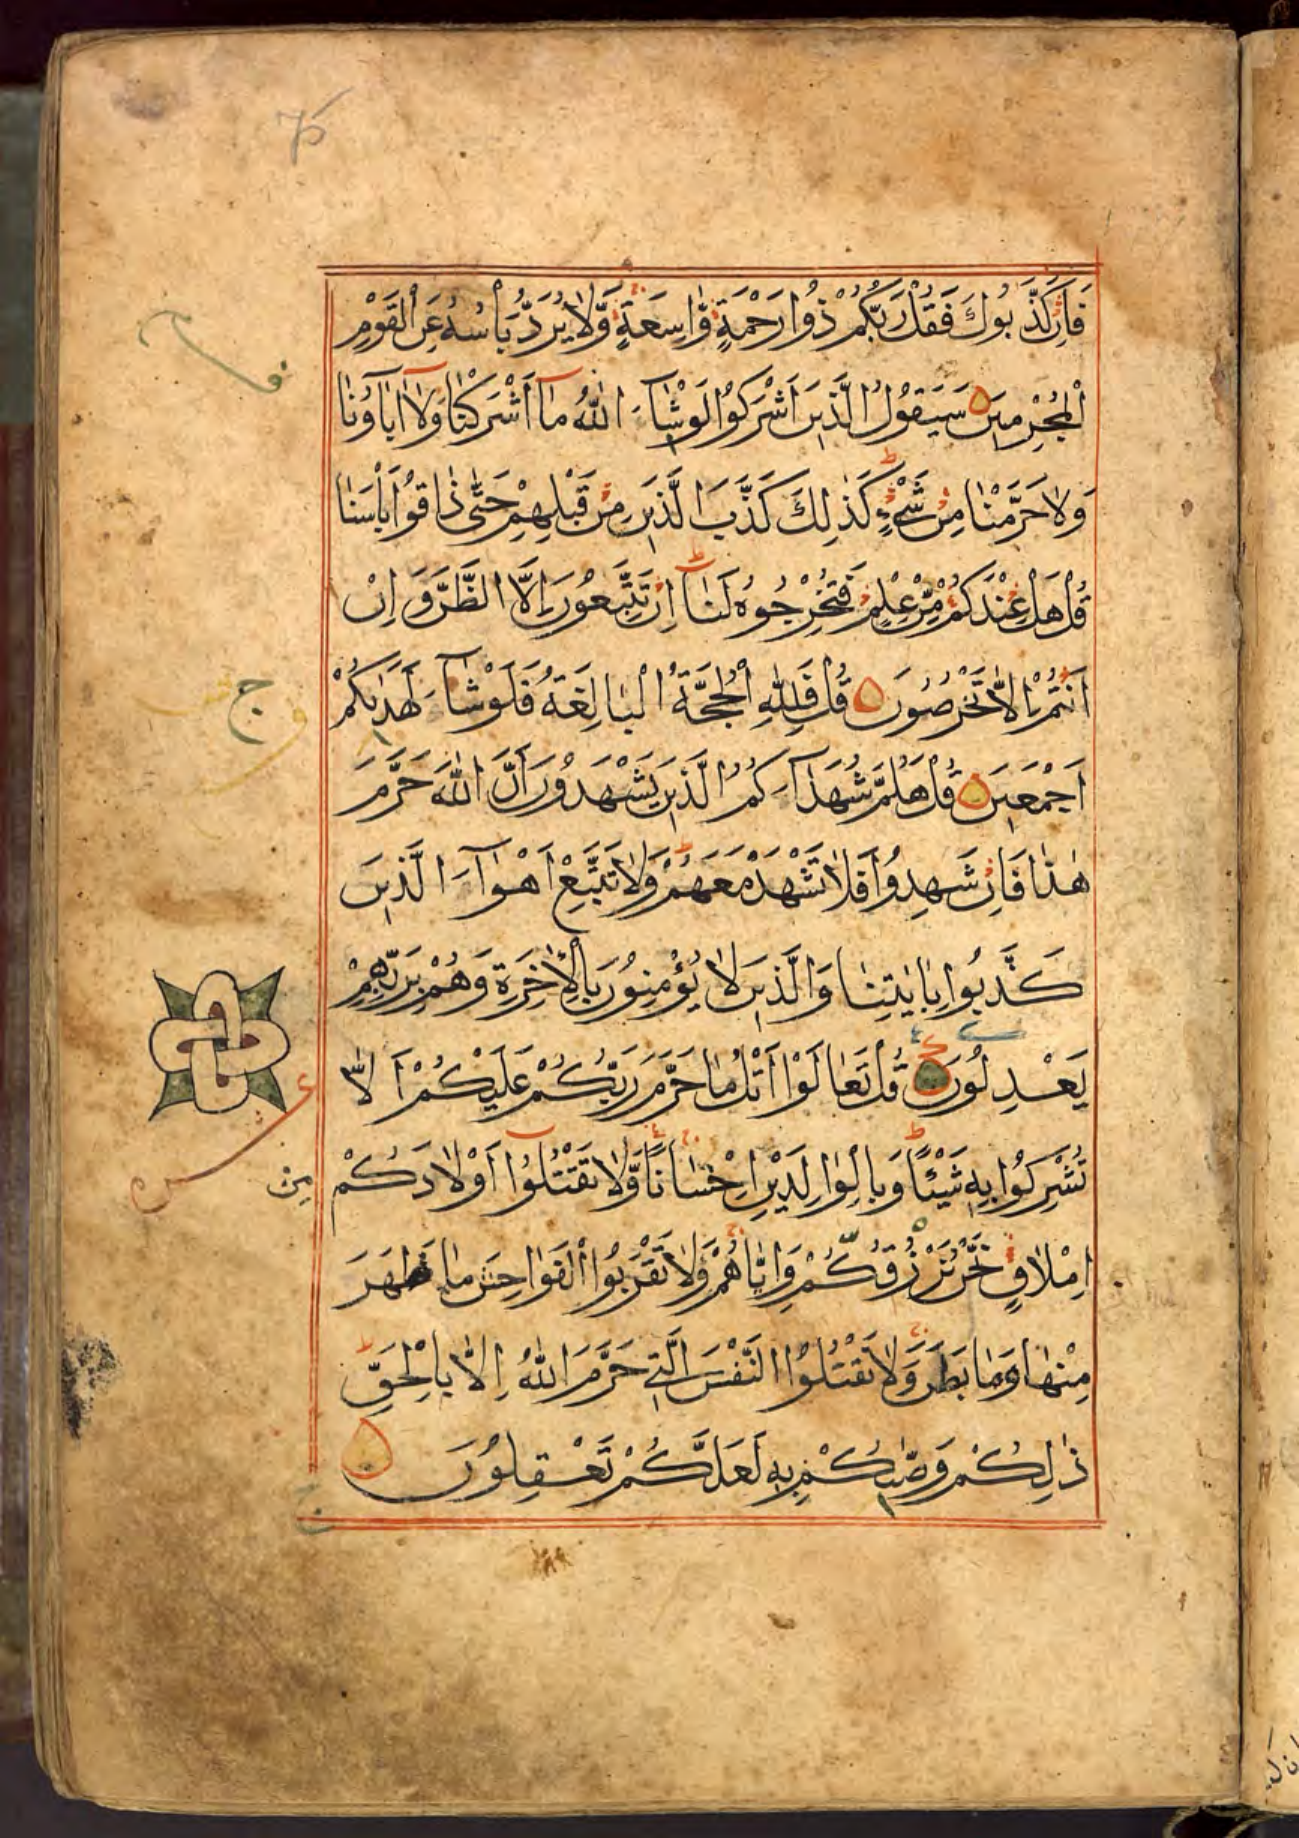 فَاِنْ كَذَّبُوكَ فَقُلْ رَبُّكُمْ ذُوا رَحْمَةٍ وَّاسِعَةٍ وَّلَا يُرَدُّ بَأْسُهُ عَنِ الْقَوْمِ
الْمُجْرِمِينَ سَيَقُولُ الَّذِينَ اَشْرَكُوْا لَوْ شَآءَ اللّٰهُ مَآ اَشْرَكْنَا وَلَآ اٰبَآؤُنَا
وَلَا حَرَّمْنَا مِنْ شَيْءٍ كَذٰلِكَ كَذَّبَ الَّذِينَ مِنْ قَبْلِهِمْ حَتّٰى ذَاقُوْا بَأْسَنَا
قُلْ هَلْ عِنْدَكُمْ مِّنْ عِلْمٍ فَتُخْرِجُوهُ لَنَآ اِنْ تَتَّبِعُونَ اِلَّا الظَّنَّ وَاِنْ
اَنْتُمْ اِلَّا تَخْرُصُونَ قُلْ فَلِلّٰهِ الْحُجَّةُ الْبَالِغَةُ فَلَوْ شَآءَ لَهَدٰىكُمْ
اَجْمَعِينَ قُلْ هَلُمَّ شُهَدَآءَكُمُ الَّذِينَ يَشْهَدُونَ اَنَّ اللّٰهَ حَرَّمَ
هٰذَا فَاِنْ شَهِدُوْا فَلَا تَشْهَدْ مَعَهُمْ وَلَا تَتَّبِعْ اَهْوَآءَ الَّذِينَ
كَذَّبُوا بِاٰيٰتِنَا وَالَّذِينَ لَا يُؤْمِنُونَ بِالْاٰخِرَةِ وَهُمْ بِرَبِّهِمْ
يَعْدِلُونَ قُلْ تَعَالَوْا اَتْلُ مَا حَرَّمَ رَبُّكُمْ عَلَيْكُمْ اَلَّا
تُشْرِكُوْا بِهِ شَيْئًا وَبِالْوَالِدَيْنِ اِحْسَانًا وَّلَا تَقْتُلُوْا اَوْلَادَكُمْ
مِنْ
اِمْلَاقٍ نَّحْنُ نَرْزُقُكُمْ وَاِيَّاهُمْ وَلَا تَقْرَبُوا الْفَوَاحِشَ مَا ظَهَرَ
مِنْهَا وَمَا بَطَنَ وَلَا تَقْتُلُوا النَّفْسَ الَّتِي حَرَّمَ اللّٰهُ اِلَّا بِالْحَقِّ
ذٰلِكُمْ وَصّٰىكُمْ بِهِ لَعَلَّكُمْ تَعْقِلُونَ